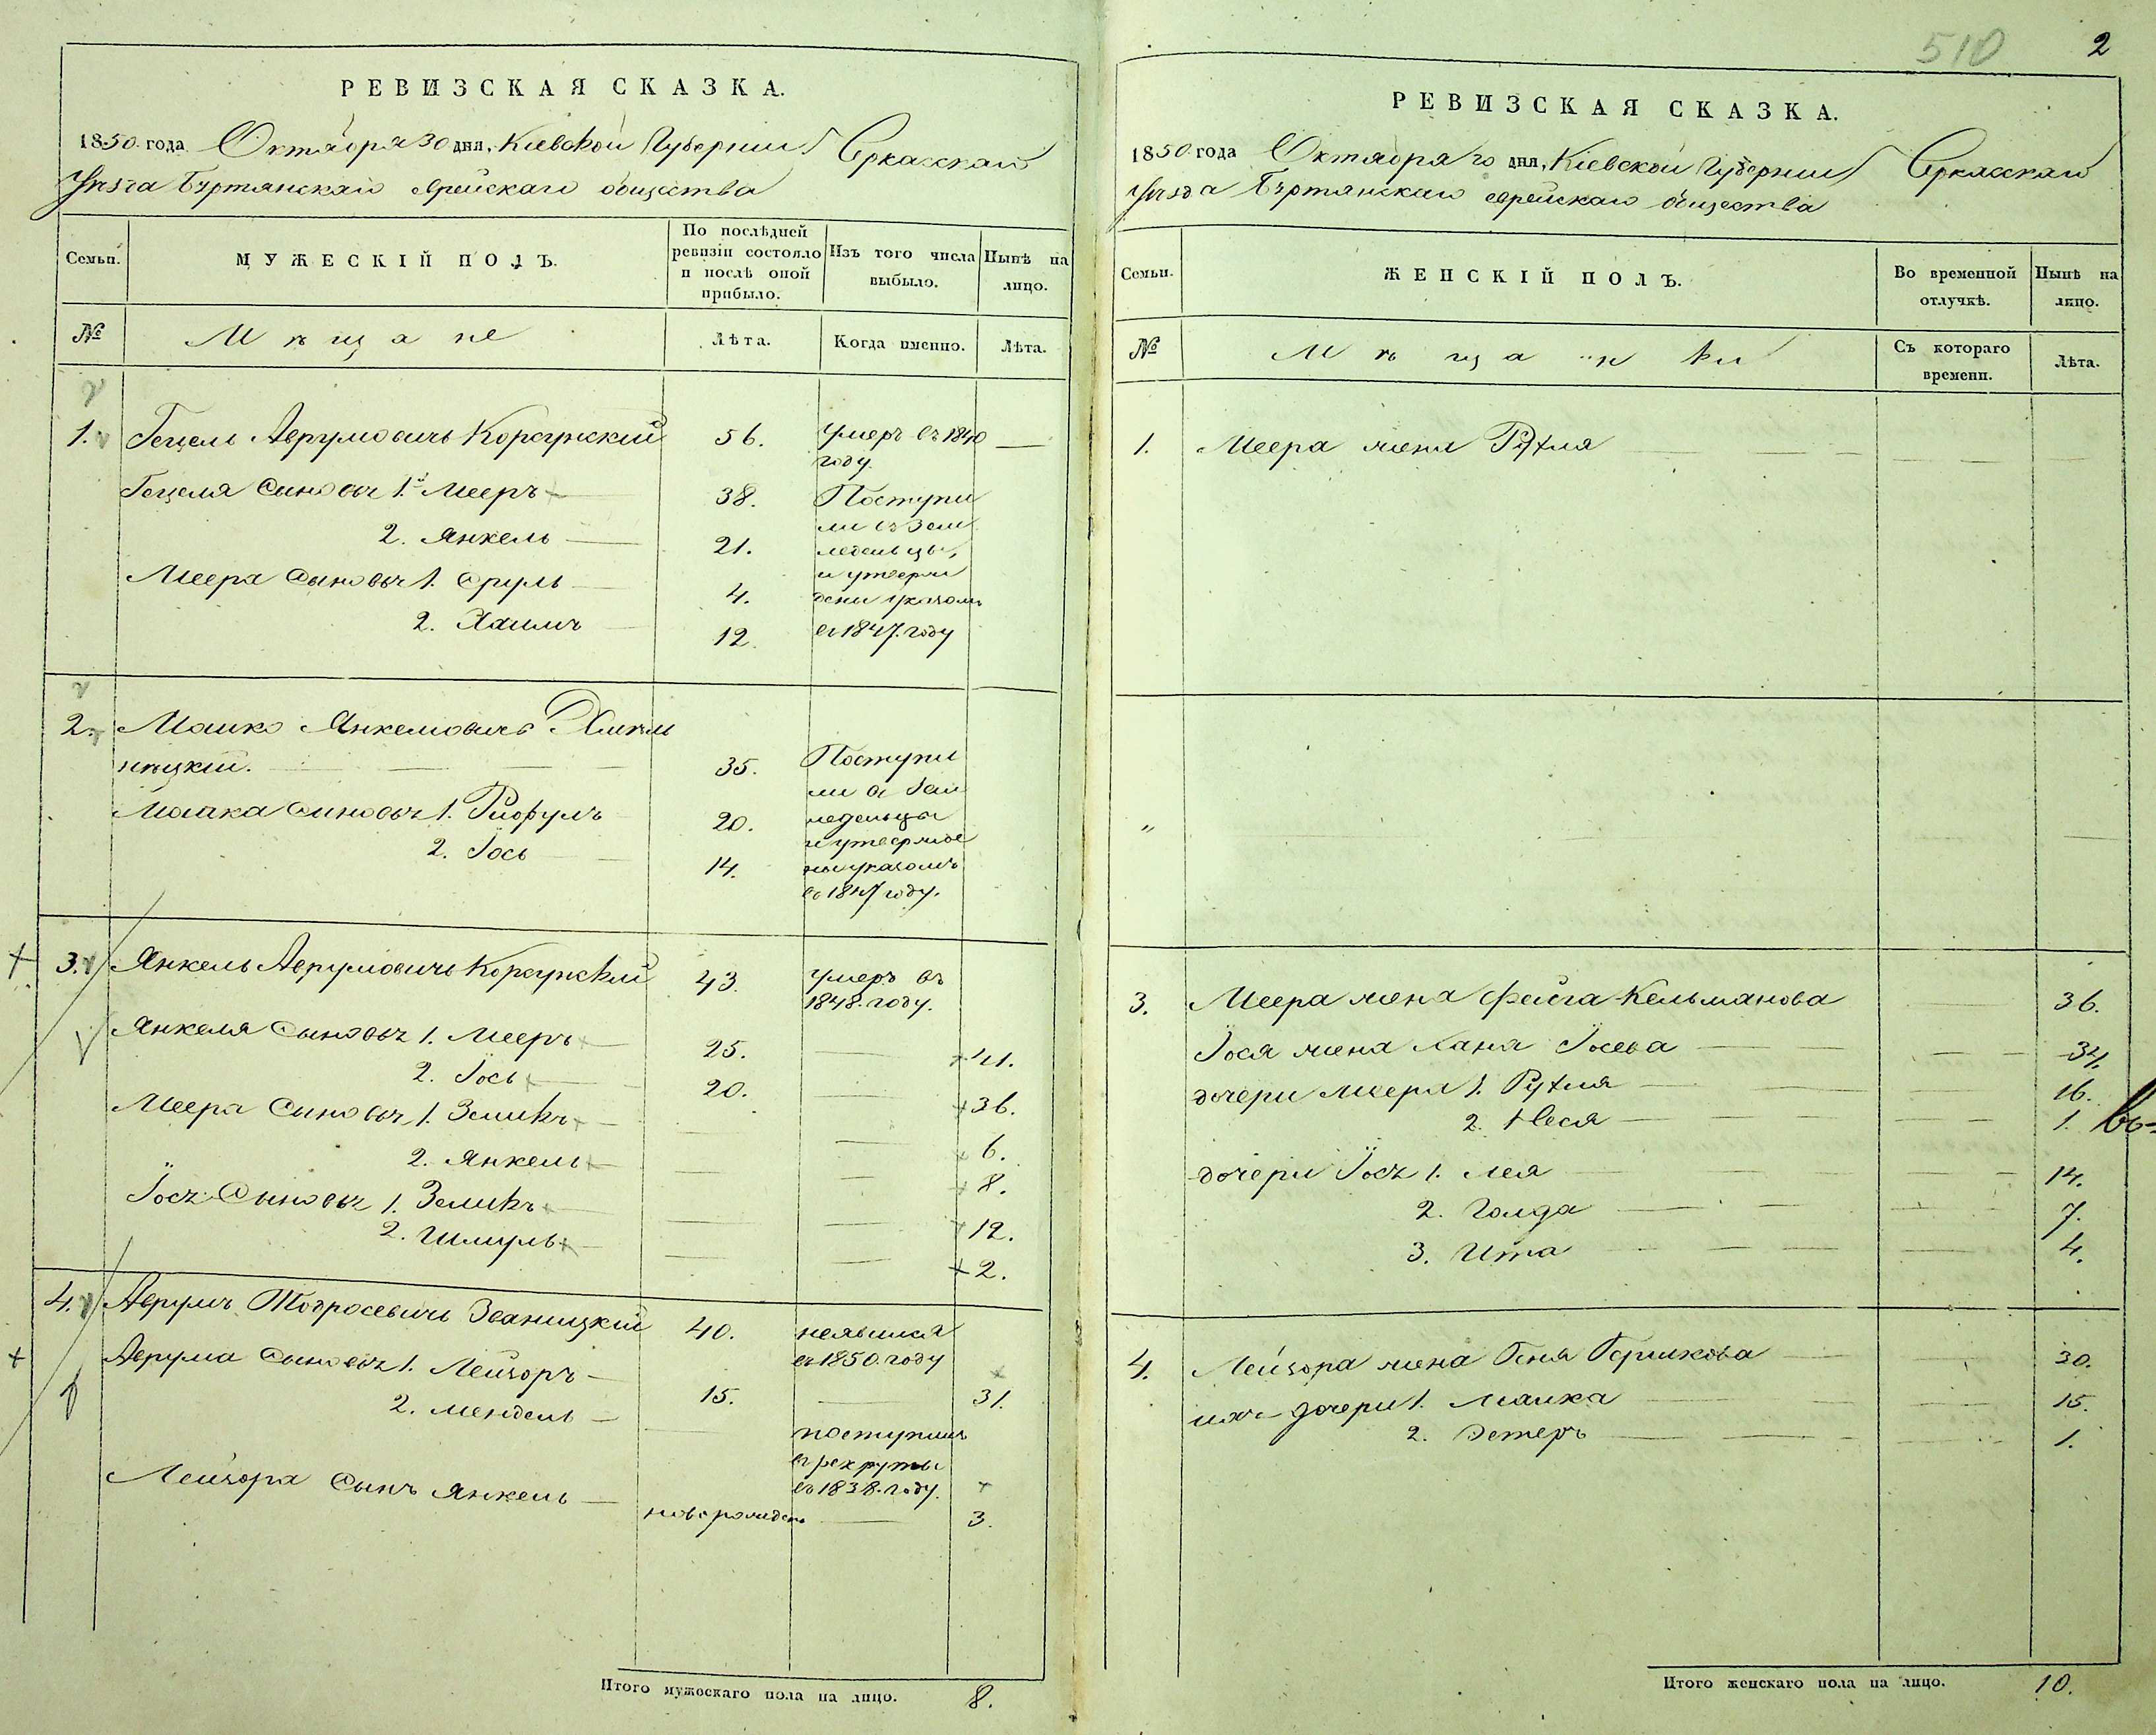 РЕВИЗСКАЯ СКАЗКА.
1850 года Октября 30 дня, Кіевской Губерніи Черкасскаго
Уѣзда Бѣртянскаго еврейскаго общества
Семьи.
МУЖЕСКІЙ ПОЛЪ.
По послѣдней ревизіи состояло и послѣ оной прибыло.
Изъ того числа выбыло.
Нынѣ на лицо.
№
Мѣщане
Лѣта.
Когда именно.
Лѣта.
1. Гецель Аврумовичъ Корсунскій 56. Умеръ въ 1840
году.
Гецеля Сыновья 1. Мееръ 38. Поступи
ли въ Зем
2. Янкель 21. ледельцы,
и утверж
Меера Сыновья 1. Сруль 4. дены указомъ
2. Хаимъ 12. въ 1847. году
2. Мошко Янкелювичъ Хмель
ницкій. 35. Поступи
ли въ Зем
Мошка Сыновья 1. Рифулъ 20. ледельцы
и утвержде
2. Іось 14. ны указомъ
въ 1847 году.
3. Янкель Аврумовичъ Корсунскій 43. умеръ въ
1848. году.
Янкеля Сыновья 1. Мееръ 25. 41.
2. Іось 20. 36.
Меера Сыновья 1. Зеликъ 6.
2. Янкель 8.
Іося Сыновья 1. Зеликъ 12.
2. Шмуль 2.
4. Аврумъ Тодросевичъ Званицкій 40. неявился
въ 1850. году
Аврума Сыновья 1. Лейзоръ 15. 31.
2. Мендель поступилъ
в рекруты
въ 1838. году.
Лейзора Сынъ Янкель новорожденъ 3.
Итого мужескаго пола на лицо. 8.
510 2
РЕВИЗСКАЯ СКАЗКА.
1850 года Октября 30 дня, Кіевской Губерніи Черкасскаго
Уѣзда Бѣртянскаго еврейскаго общества
Семьи.
ЖЕНСКІЙ ПОЛЪ.
Во временной отлучкѣ.
Нынѣ на лицо.
№
Мѣщанки
Съ котораго времени.
Лѣта.
1. Меера жена Рухля
"
3. Меера жена Фейга Кельманова 36.
Іося жена Хана Іосева 34.
дочери Меера 1. Рухля 16.
2. Неся 1.
дочери Іося 1. Лея 14.
2. Голда 7.
3. Ита 4.
4. Лейзора жена Геня Гершкова 30.
ихъ дочери 1. Малка 15.
2. Эстеръ 1.
Итого женскаго пола на лицо. 10.